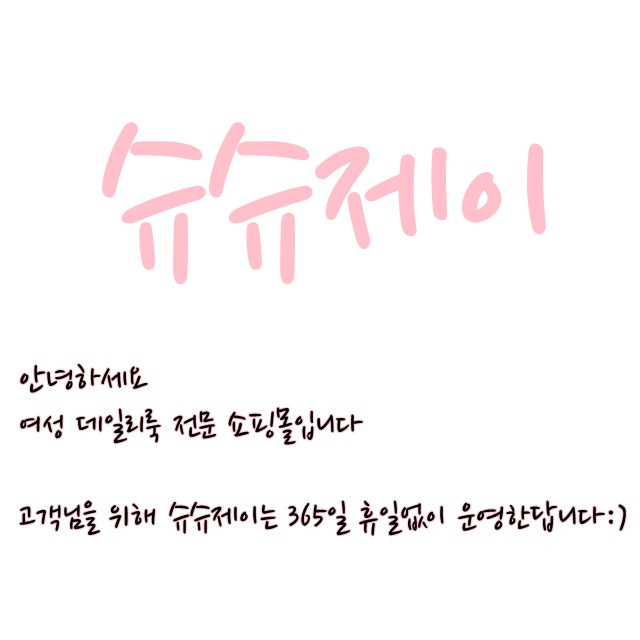 슈슈제이
안녕하세요
여성 데일리룩 전문 쇼핑몰입니다
고객님을 위해 슈슈제이는 365일 휴일없이 운영한답니다:)